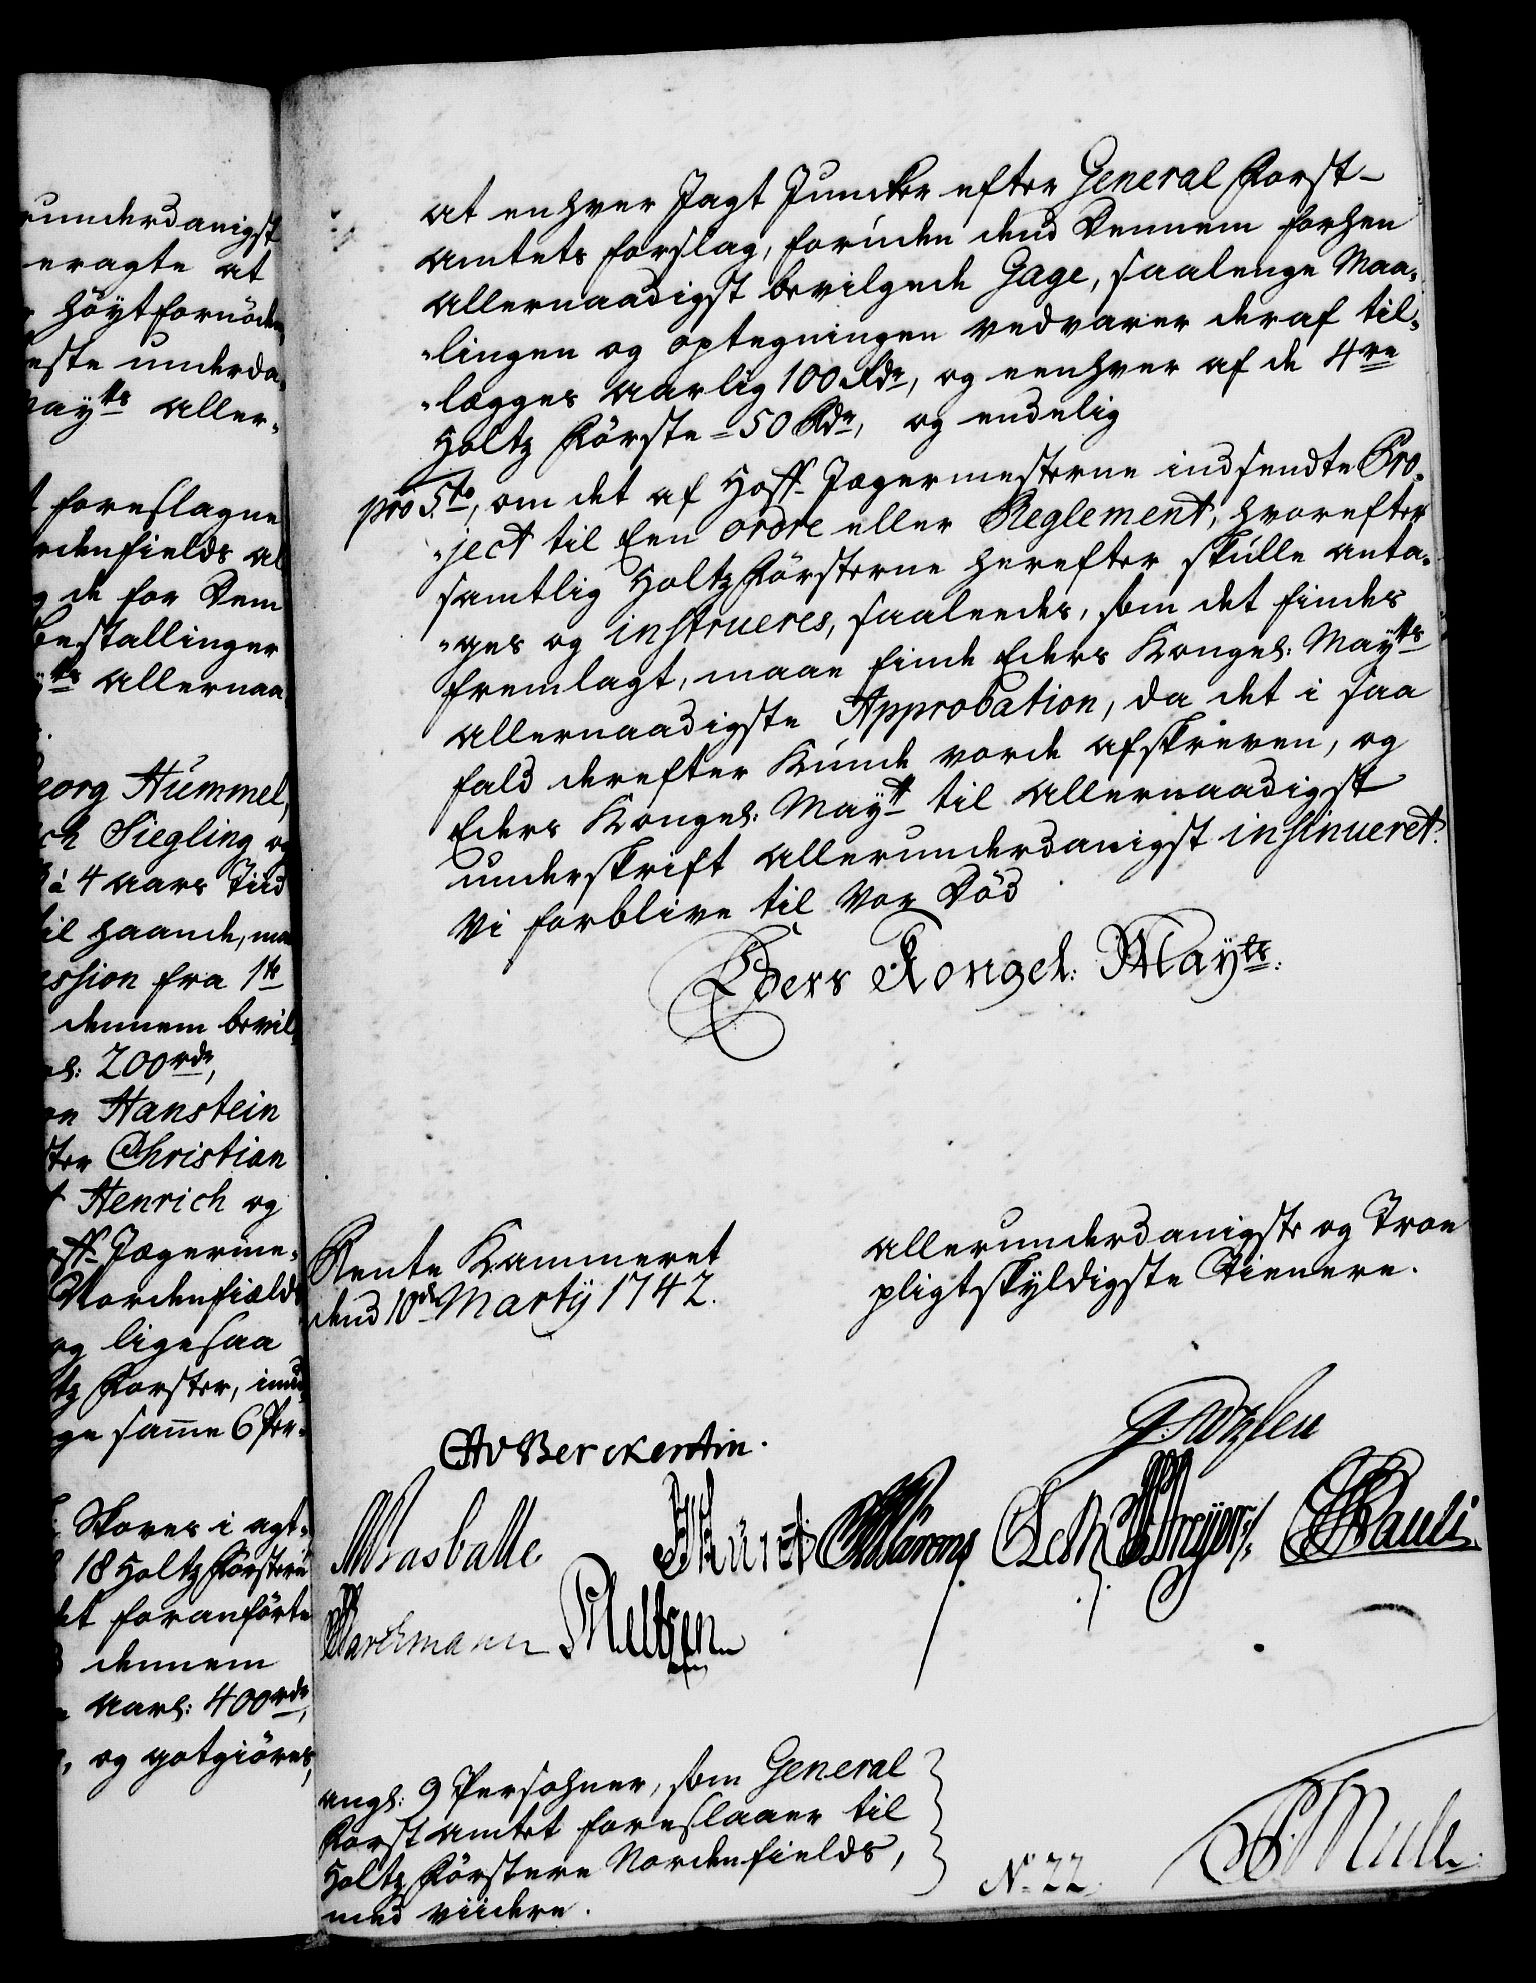 runderdanigst
eragte at
höytfornöden
este underda-
Maytts aller-
foreslagne
rdenfields al
g de for Dem
Bestallinger
tts allernaa
eorg Hummel,
ch Siegling og
à 4 Aars Tiid
til haande, ma
ession fra 1te
dennem bevil
l: 200 rdr,
on Hanstein
ster Christian
t Henrich og
off-Jægerme-
Nordenfields
og ligesaa
tz Forster, im
ge samme 6 Per-
Skoves i agt-
18 Holtz Förstere
et foranförte
dennem
Aarl: 400 rdr,
, og gotgiöres,
at enhver Jagt Juncker efter General Forst-
Amtets forslag, foruden dend Dennem forhen
Allernaadigst bevilgede Gage, saalenge Maa-
-lingen og optegningen vedvarer deraf til-
-lægges aarlig 100 Rdr, og eenhver af de 4re
Holtz Förste = 50 Rdr, og endelig
pro 5to, om det af Hoff-Jægermesterne indsendte Pro-
-ject til Een ordre eller Reglement, hvorefter
samtlig Holtz Försterne herefter skulle anta-
-ges og instrueres, saaleedes, som det findes
fremlagt, maae finde Eders Kongel: Maytts
Allernaadigste Approbation, da det i saa
fald derefter kunde vorde afskreven, og
Eders Kongel: Maytt til Allernaadigst
underskrift allerunderdanigst insinueret.
Vi forblive til Vor Död
Eders Kongel: Maytts:
Rente Kammeret
dend 10de Martij 1742.
allerunderdanigste og Troe
pligtskyldigste Tienere.
CAvBerckentin.
Brasballe
Pauli
Warthmann
angl: 9 Persohner, som General
Forst Amtet foreslaaer til
Holtz Förstere Nordenfields,
med viidere.
No 22.
Mule